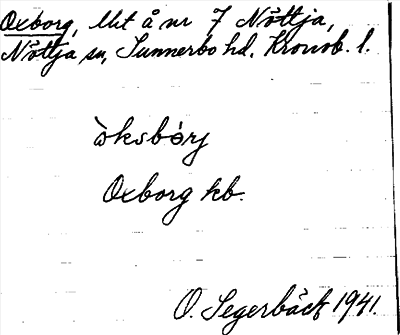 Oxborg, lht å nr 7 Nöttja,
Nöttja sn, Sunnerbo hd. Kronob. l.
òksbòrj
Oxborg kb.
O. Segerbäck 1941.